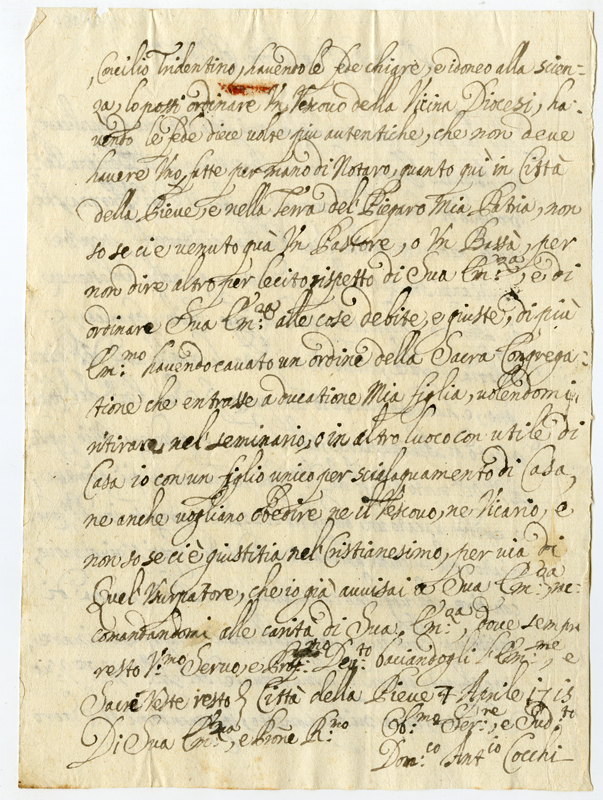 Concilio Tridentino, havendo le fede chiare, e idoneo alla scien-
za, lo possi ordinare Un Vescovo della Vicina Diocesi, ha-
vendo le fede diece volte piu autentiche, che non deve
havere Uno, fatte per mano di Notaro, quanto qui in Città
della Pieve, e nella Terra del Piegaro Mia Patria, non
so se ci è venuto quà Un Pastore, o Un Bassà, per
non dire altro per lecito rispetto di Sua Em.za, e di
ordinare Sua Em.za alle cose debite, e giuste, di più
Em.mo havendo cavato un ordine della Sacra Congrega-
tione che entrasse a ducatione Mia figlia, volendomi
ritirare nel seminario, o in altro luoco con utile di
Casa io con un figlio unico per scielaquamento di Casa,
ne anche vogliano obedire ne il Vescovo, ne Vicario, e
non so se ci è giustitia nel Cristianesimo, per via di
Quel Usurpatore, che io già avvisai a Sua Em.za, re-
comandandomi alle carità di Sua Em.za, dove sempre
resto V.mo Servo, e baciandogli Em.me, e
Sacre Veste resto Città della Pieve 7 Aprile 1715
Di Sua Em.za, e Prone R.mo Ob.mo Ser.re, e Sud.to
Dom.co Ant.io Cocchi